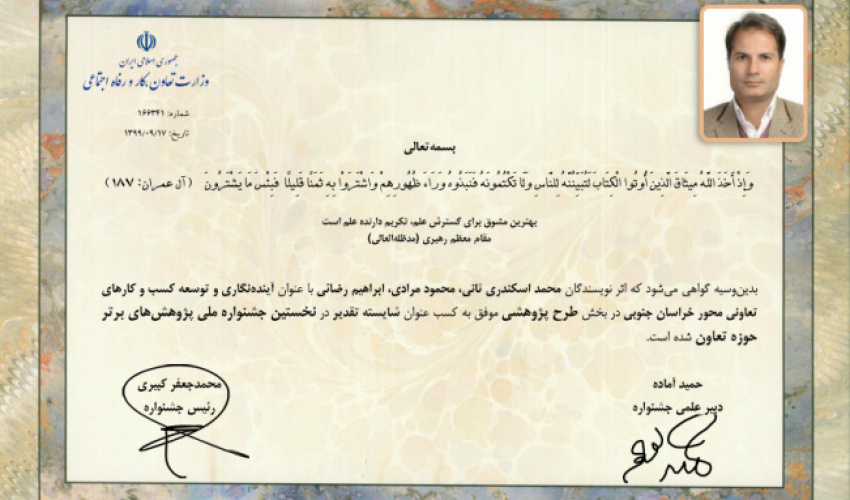 جمهوری اسلامی ایران
وزارت تعاون، کار و رفاه اجتماعی
شماره: ۱۶۶۳۴۱
تاریخ: ۱۳۹۹/۰۹/۱۷
بسمه تعالی
وَإِذْ أَخَذَ اللَّهُ مِيثَاقَ الَّذِينَ أُوتُوا الْكِتَابَ لَتُبَيِّنُنَّهُ لِلنَّاسِ وَلَا تَكْتُمُونَهُ فَنَبَذُوهُ وَرَاءَ ظُهُورِهِمْ وَاشْتَرَوْا بِهِ ثَمَنًا قَلِيلًا فَبِئْسَ مَا يَشْتَرُونَ (آل عمران: ۱۸۷)
بهترین مشوق برای گسترش علم، تکریم دارنده علم است
مقام معظم رهبری (مدظله‌العالی)
بدین‌وسیله گواهی می‌شود که اثر نویسندگان محمد اسکندری ثانی، محمود مرادی، ابراهیم رضائی با عنوان آینده‌نگاری و توسعه کسب و کارهای
تعاونی محور خراسان جنوبی در بخش طرح پژوهشی موفق به کسب عنوان شایسته تقدیر در نخستین جشنواره ملی پژوهش‌های برتر
حوزه تعاون شده است.
حمید آماده
دبیر علمی جشنواره
محمدجعفر کبیری
رئیس جشنواره